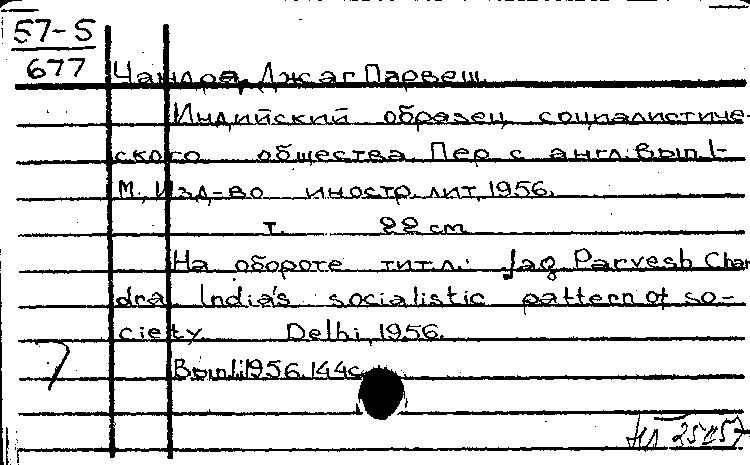 57-5
677
Чандра, Джаг Парвеш.
Индийский образец социалистиче-
ского общества. Пер. с англ. Вып.1-
М., Изд-во иностр. лит, 1956.
т. 22 см
На обороте тит.л.: Jag Parvesh Chan
dra India's socialistic pattern of so-
ciety. Delhi, 1956.
Вып.1. 1956. 144с.